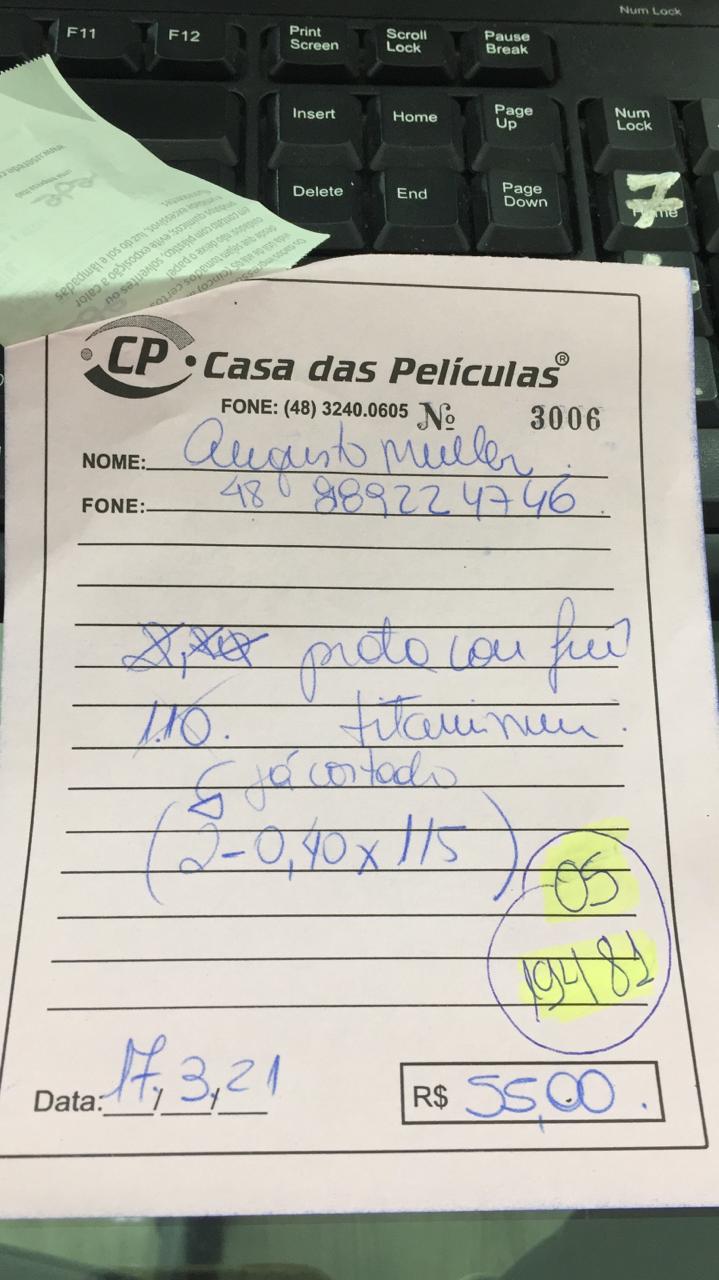 Num Lock
F11 F12 Print Screen Scroll Lock Pause Break
Insert Home Page Up Num Lock
Delete End Page Down 7
rede
CP Casa das Películas®
FONE: (48) 3240.0605 Nº 3006
NOME: Augusto Muller.
FONE: 48 989224746.
titanium.
1.10.
já cortado
(2-0,40x115)
05
19481
Data: 17/3/21 R$ 55,00.